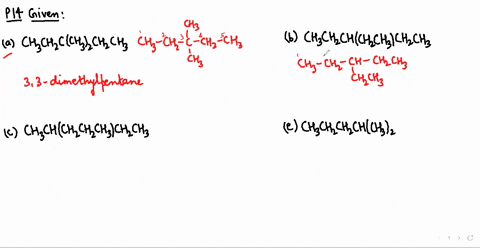 P14 Given:
CH3
(a) CH3CH2C(CH3)2CH2CH3 1CH3-2CH2-3C-4CH2-5CH3
CH3
3,3-dimethylpentane
(b) CH3CH2CH(CH2CH3)CH2CH3
1CH3-2CH2-CH-CH2CH3
CH2CH3
(c) CH3CH(CH2CH2CH3)CH2CH3
(e) CH3CH2CH2CH(CH3)2